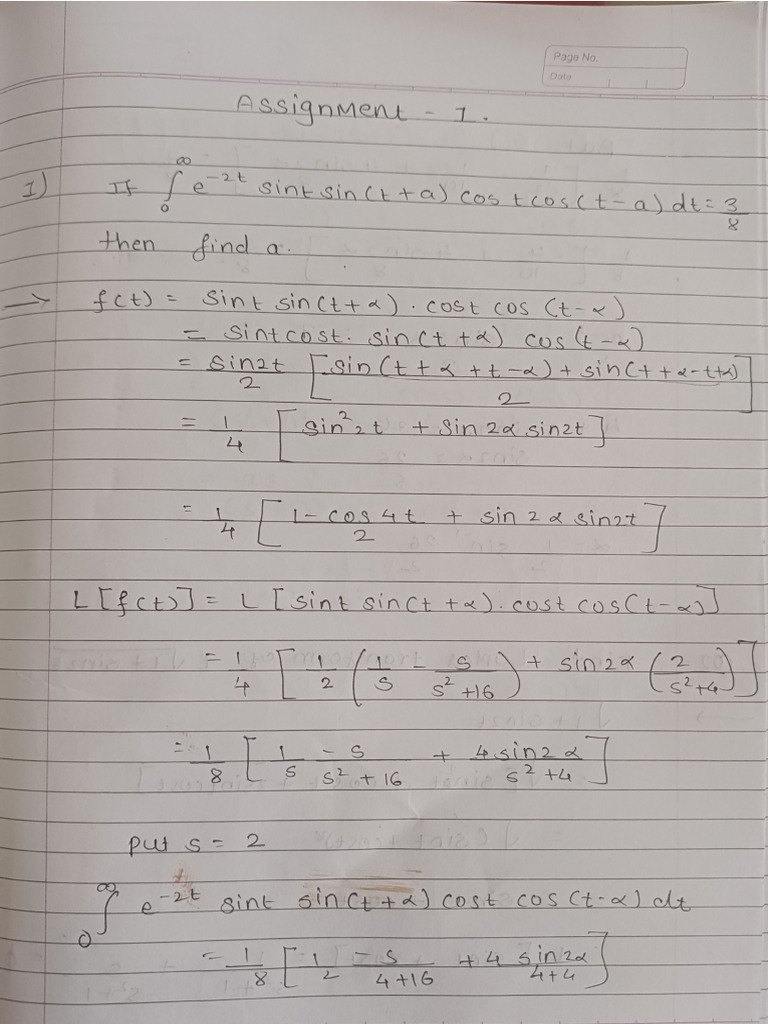 Page No.
Date
Assignment - 1.
1) If ∫₀^∞ e^-2t sint sin(t+a) cos t cos(t-a) dt = 3/8
then find a.
→ f(t) = sint sin(t+α) . cost cos (t-α)
= sintcost. sin(t+α) cos(t-α)
= sin2t/2 [sin(t+α+t-α) + sin(t+α-t+α)/2]
= 1/4 [sin²2t + sin2α sin2t]
= 1/4 [1-cos4t/2 + sin2α sin2t]
L[f(t)] = L[sint sin(t+α). cost cos(t-α)]
= 1/4 [1/2 (1/s - s/s²+16) + sin2α (2/s²+4)]
= 1/8 [1/s - s/s²+16 + 4sin2α/s²+4]
put s = 2
∫₀^∞ e^-2t sint sin(t+α) cost cos(t-α) dt
= 1/8 [1/2 - s/4+16 + 4 sin2α/4+4]